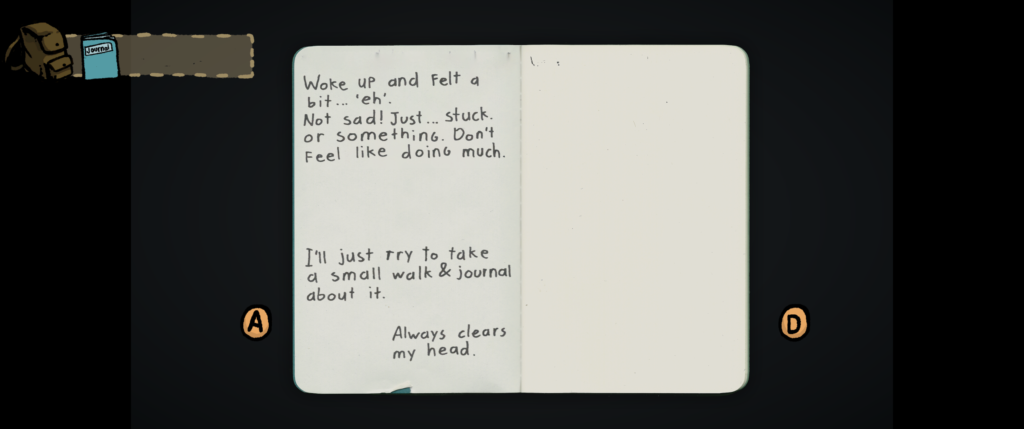 Journal
Woke up and felt a
bit... 'eh'.
Not sad! Just... stuck.
or something. Don't
Feel like doing much.
I'll just try to take
a small walk & journal
about it.
Always clears
my head.
A
D